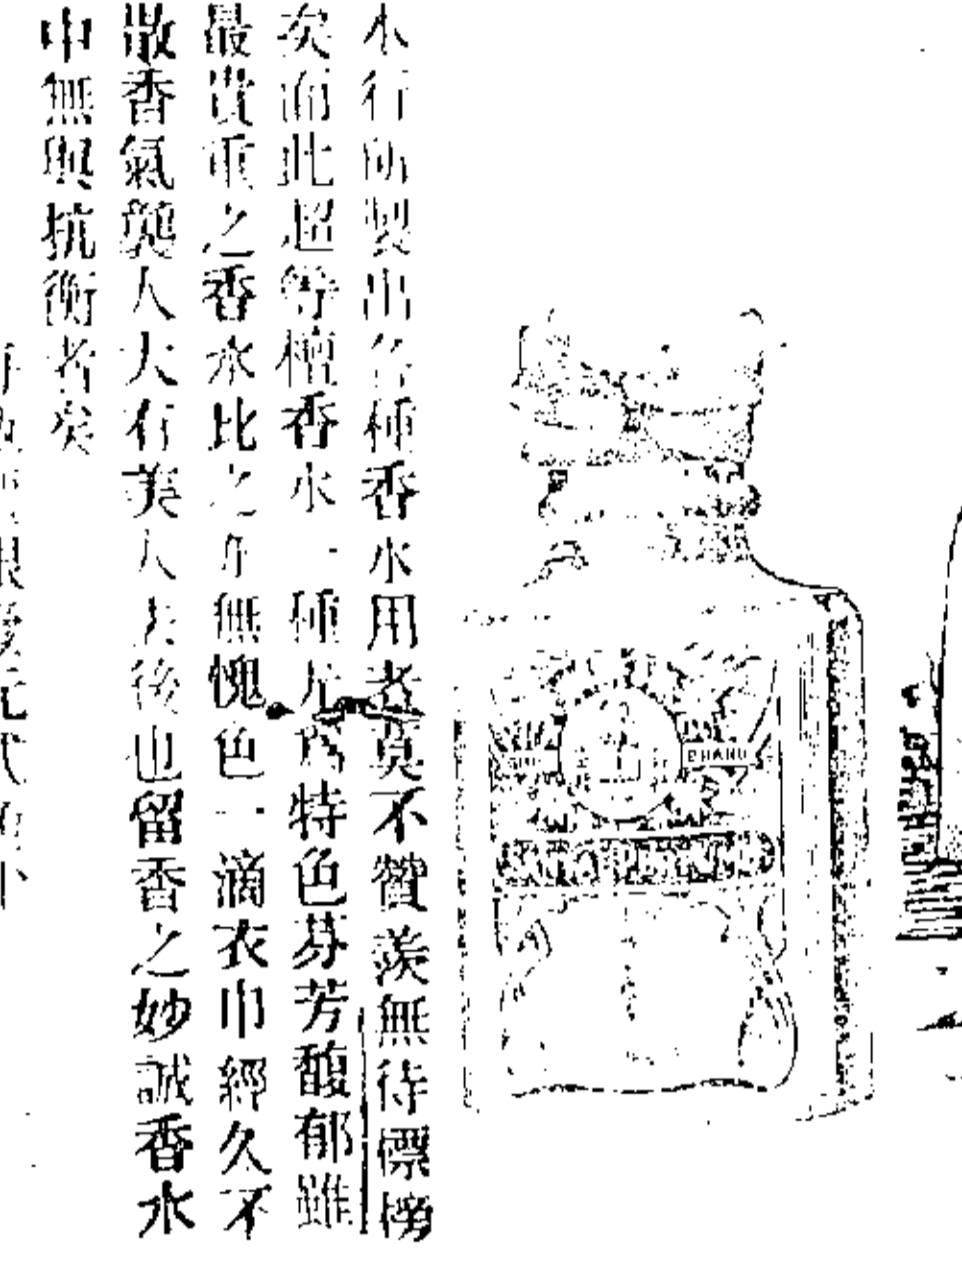 本行所製出各種香水用者莫不贊羨無待標榜
矣而此超等檀香水一種尤為特色芬芳馥郁雖
最貴重之香水比之亦無愧色一滴衣巾經久不
散香氣襲人大有美人去後也留香之妙誠香水
中無與抗衡者矣
BRAND